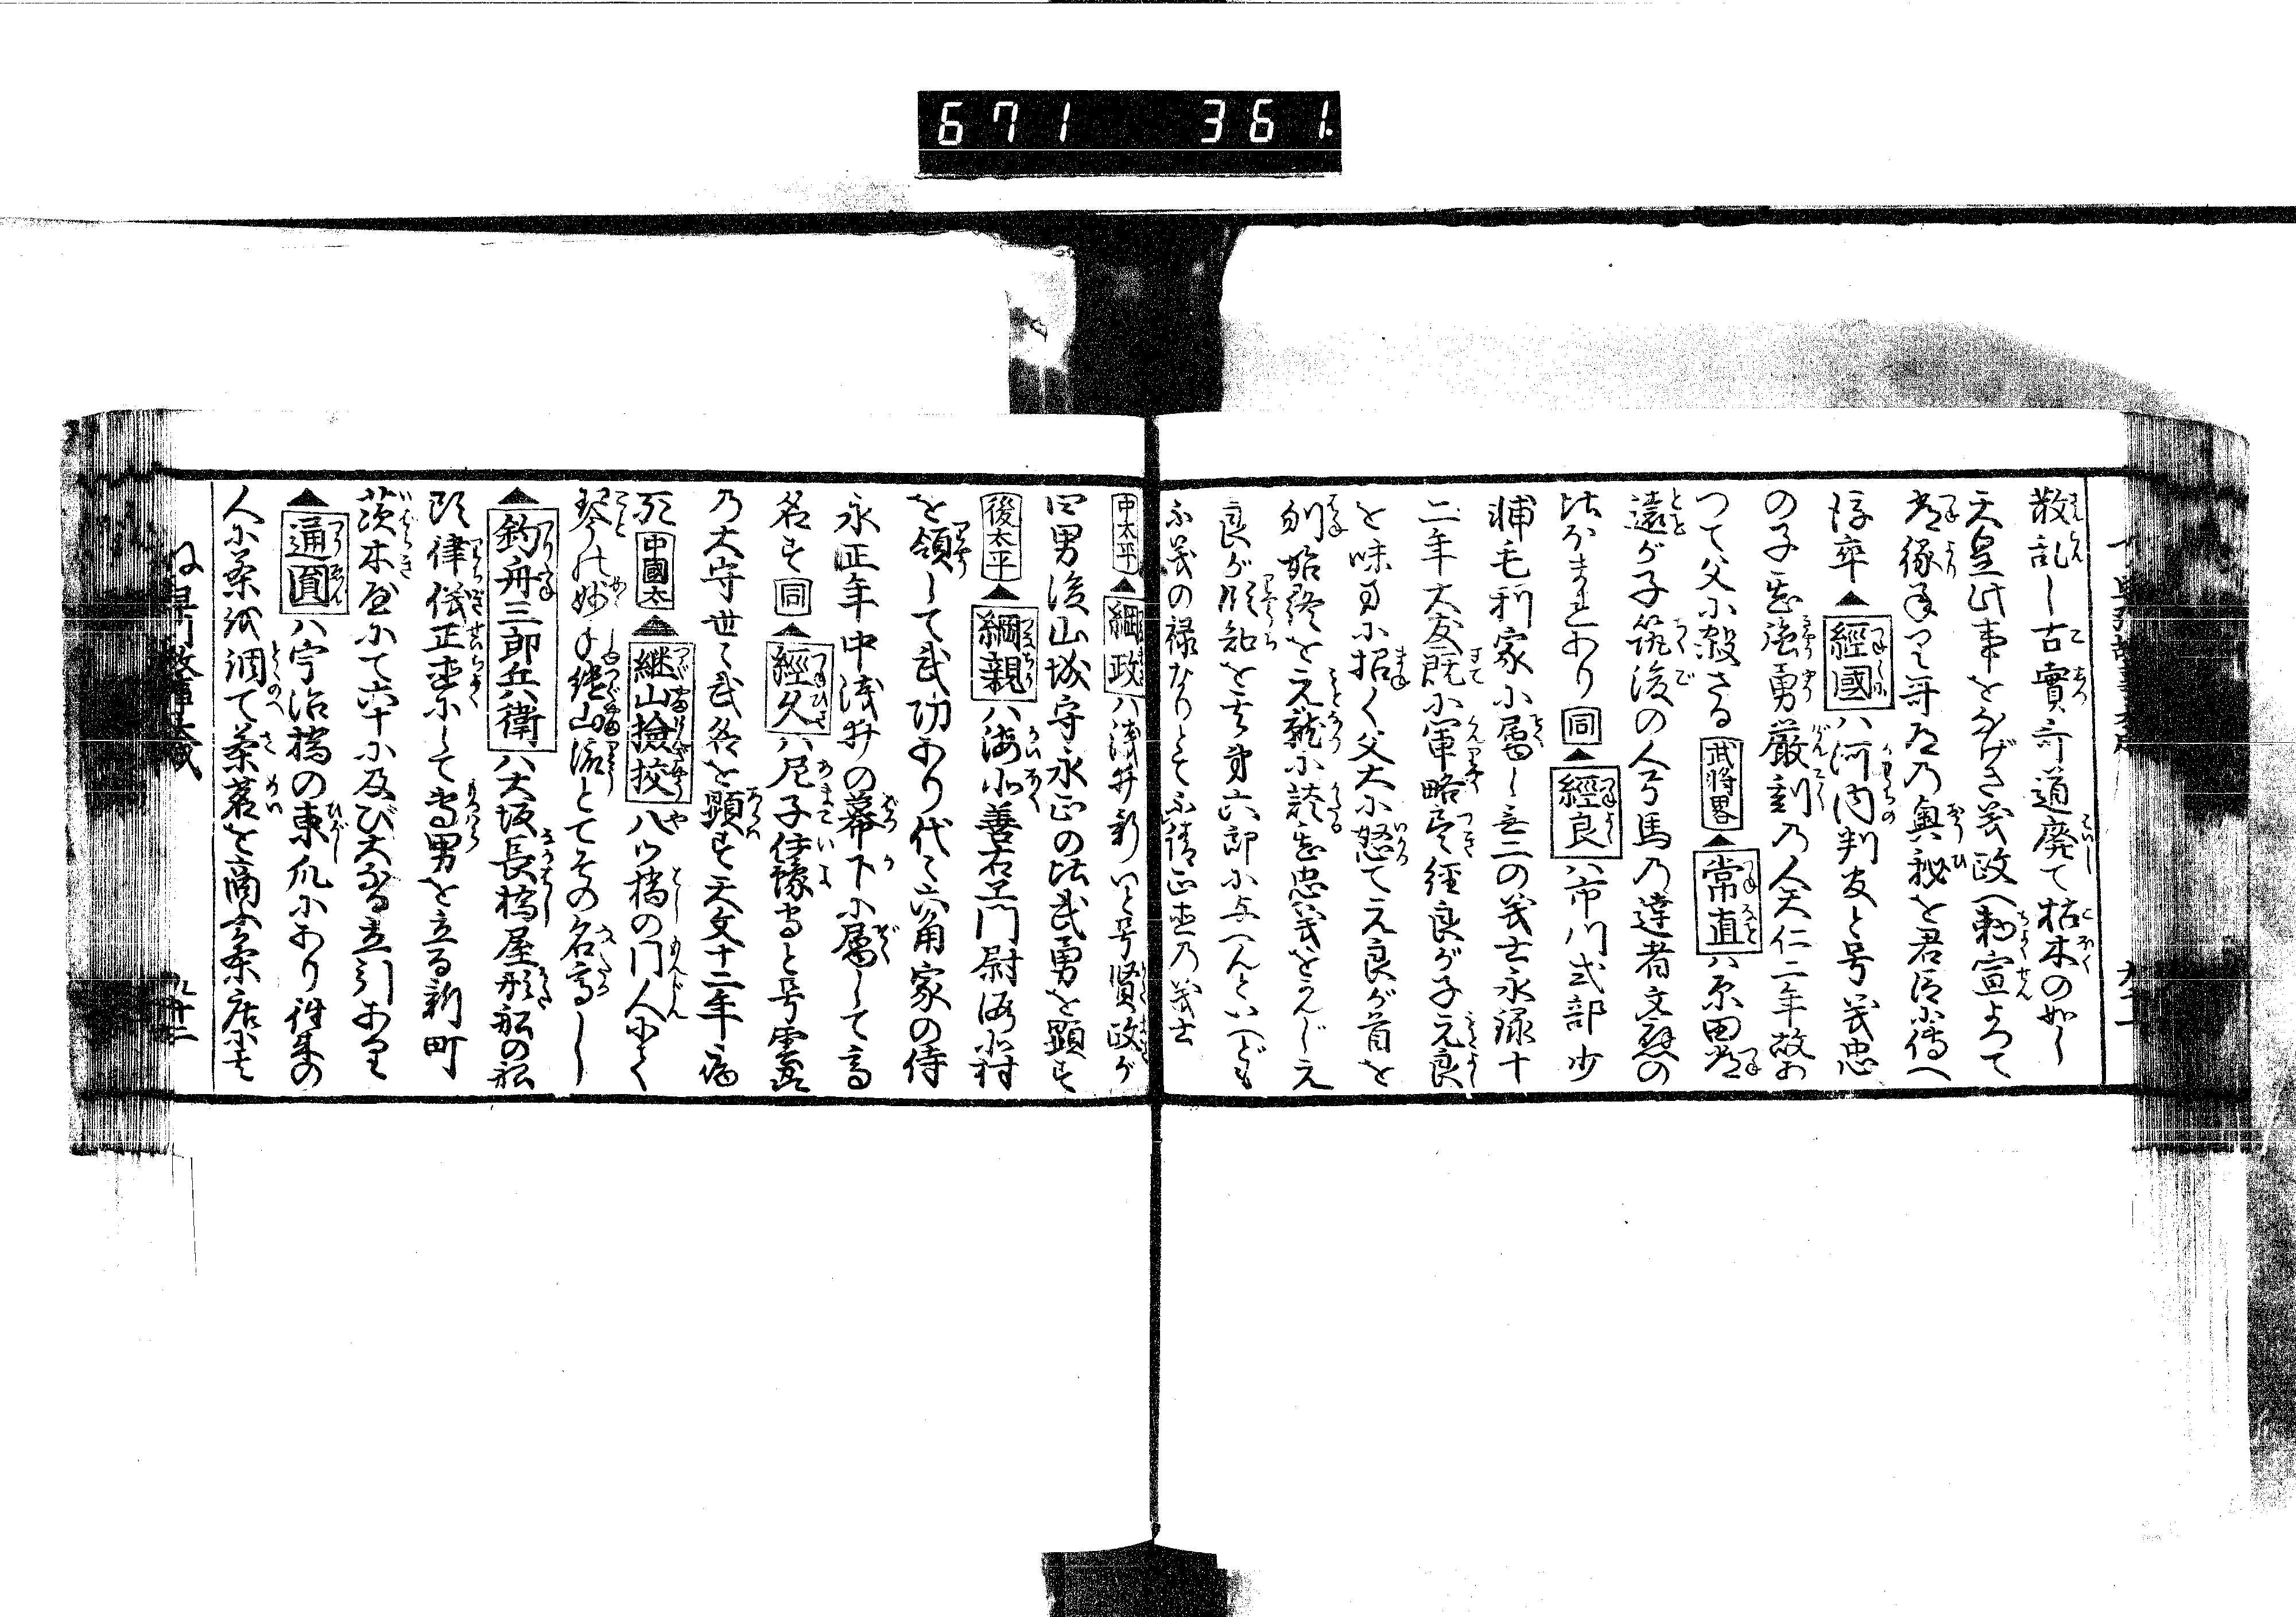 671 361
散乱し古實哥道廃て枯木の如し
天皇此事をなげき義政へ勅宣よつて
常縁ねりて哥道乃奥秘を君臣に傳へ
得卒▲經國ハ河内判官と号義忠
の子也強勇厳刻乃人天仁二年故あ
つて父に殺さる武将畧▲常直ハ原田常
遠が子筑後の人弓馬乃達者文殿の
北おもまれあり同▲經良ハ市川式部少
輔毛利家に属し無二の義士永禄十
二年大友既に軍略尽経良が子元良
を味方に招く父大に怒て元良が首を
刎始終を元就に談也忠義をかんじ元
良が所知を舎弟六郎に与へんといへども
不義の禄なりとて不請正直乃義士
中太平▲綱政ハ浅井新八と号賢政が
四男後山城守永正の比武勇を顕す
後太平▲綱親ハ海北善右エ門尉海北村
を領して武功あり代々六角家の侍
永正年中浅井の幕下に属して高
名す同▲經久ハ尼子伊豫守と号雲州
乃大守世々武名を顕す天文十二年病
死中國太▲継山撿挍ハ八ツ橋の門人にて
琴の妙手継山流とてその名高し
▲釣舟三郎兵衛ハ大坂長橋屋形舩の舩
頭律儀正直にして專男を立る新町
茨木屋にて六十に及び大なる立引あり
▲通圓ハ宇治橋の東爪にあり往来の
人に茶を調て茶茗を商ふ茶店にて